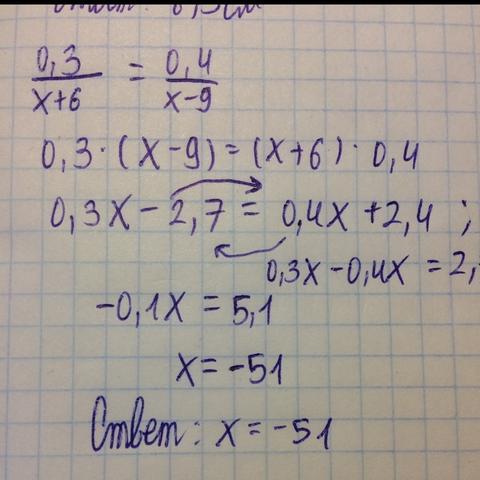 0,3/x+6 = 0,4/x-9
0,3·(x-9)=(x+6)·0,4
0,3x-2,7=0,4x+2,4;
0,3x-0,4x=2,
-0,1x=5,1
x=-51
Ответ: x=-51